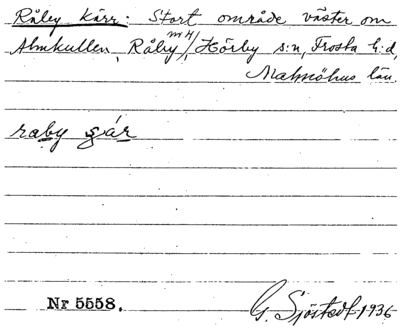 Råby Kärr: Stort område väster om
Almkullen, Råby m 4/, Hörby s:n, Frosta h:d,
Malmöhus län.
raby sár
Nr 5558.
G. Sjöstedt 1936